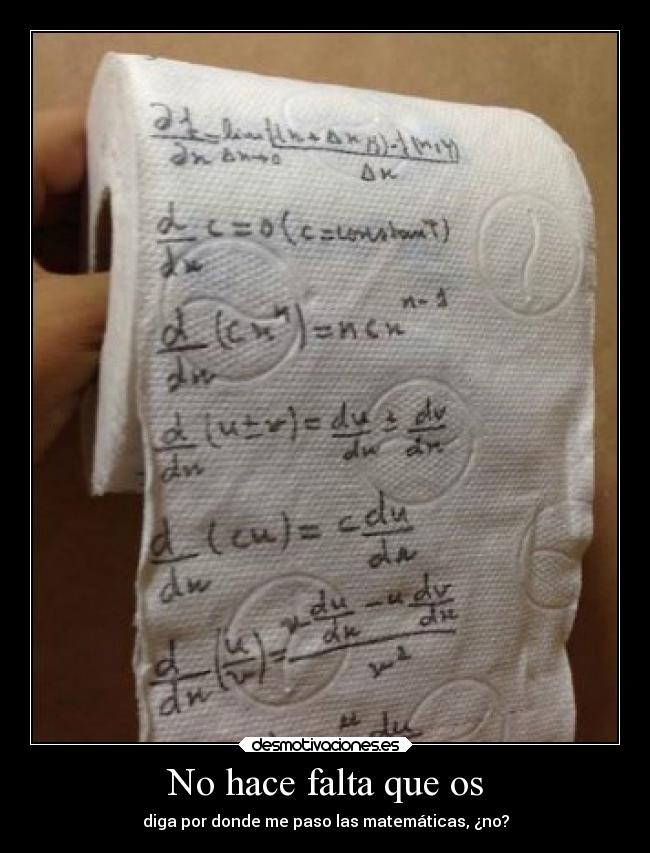 ∂f/∂x = lim Δx→0 f(x+Δx,y)-f(x,y)/Δx
d/dx c = 0 (c = constanT)
d/dx (cxⁿ) = ncxⁿ⁻¹
d/dx (u ± v) = du/dx ± dv/dx
d/dx (cu) = c du/dx
d/dx (u/v) = v du/dx - u dv/dx / v²
u du
desmotivaciones.es
No hace falta que os
diga por donde me paso las matemáticas, ¿no?